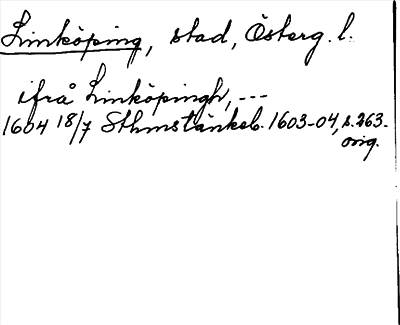 Linköping, stad, Österg. l.
ifrå Linköpingh, ---
1604 18/7 Sthmstänkeb. 1603-04, s. 263.
orig.